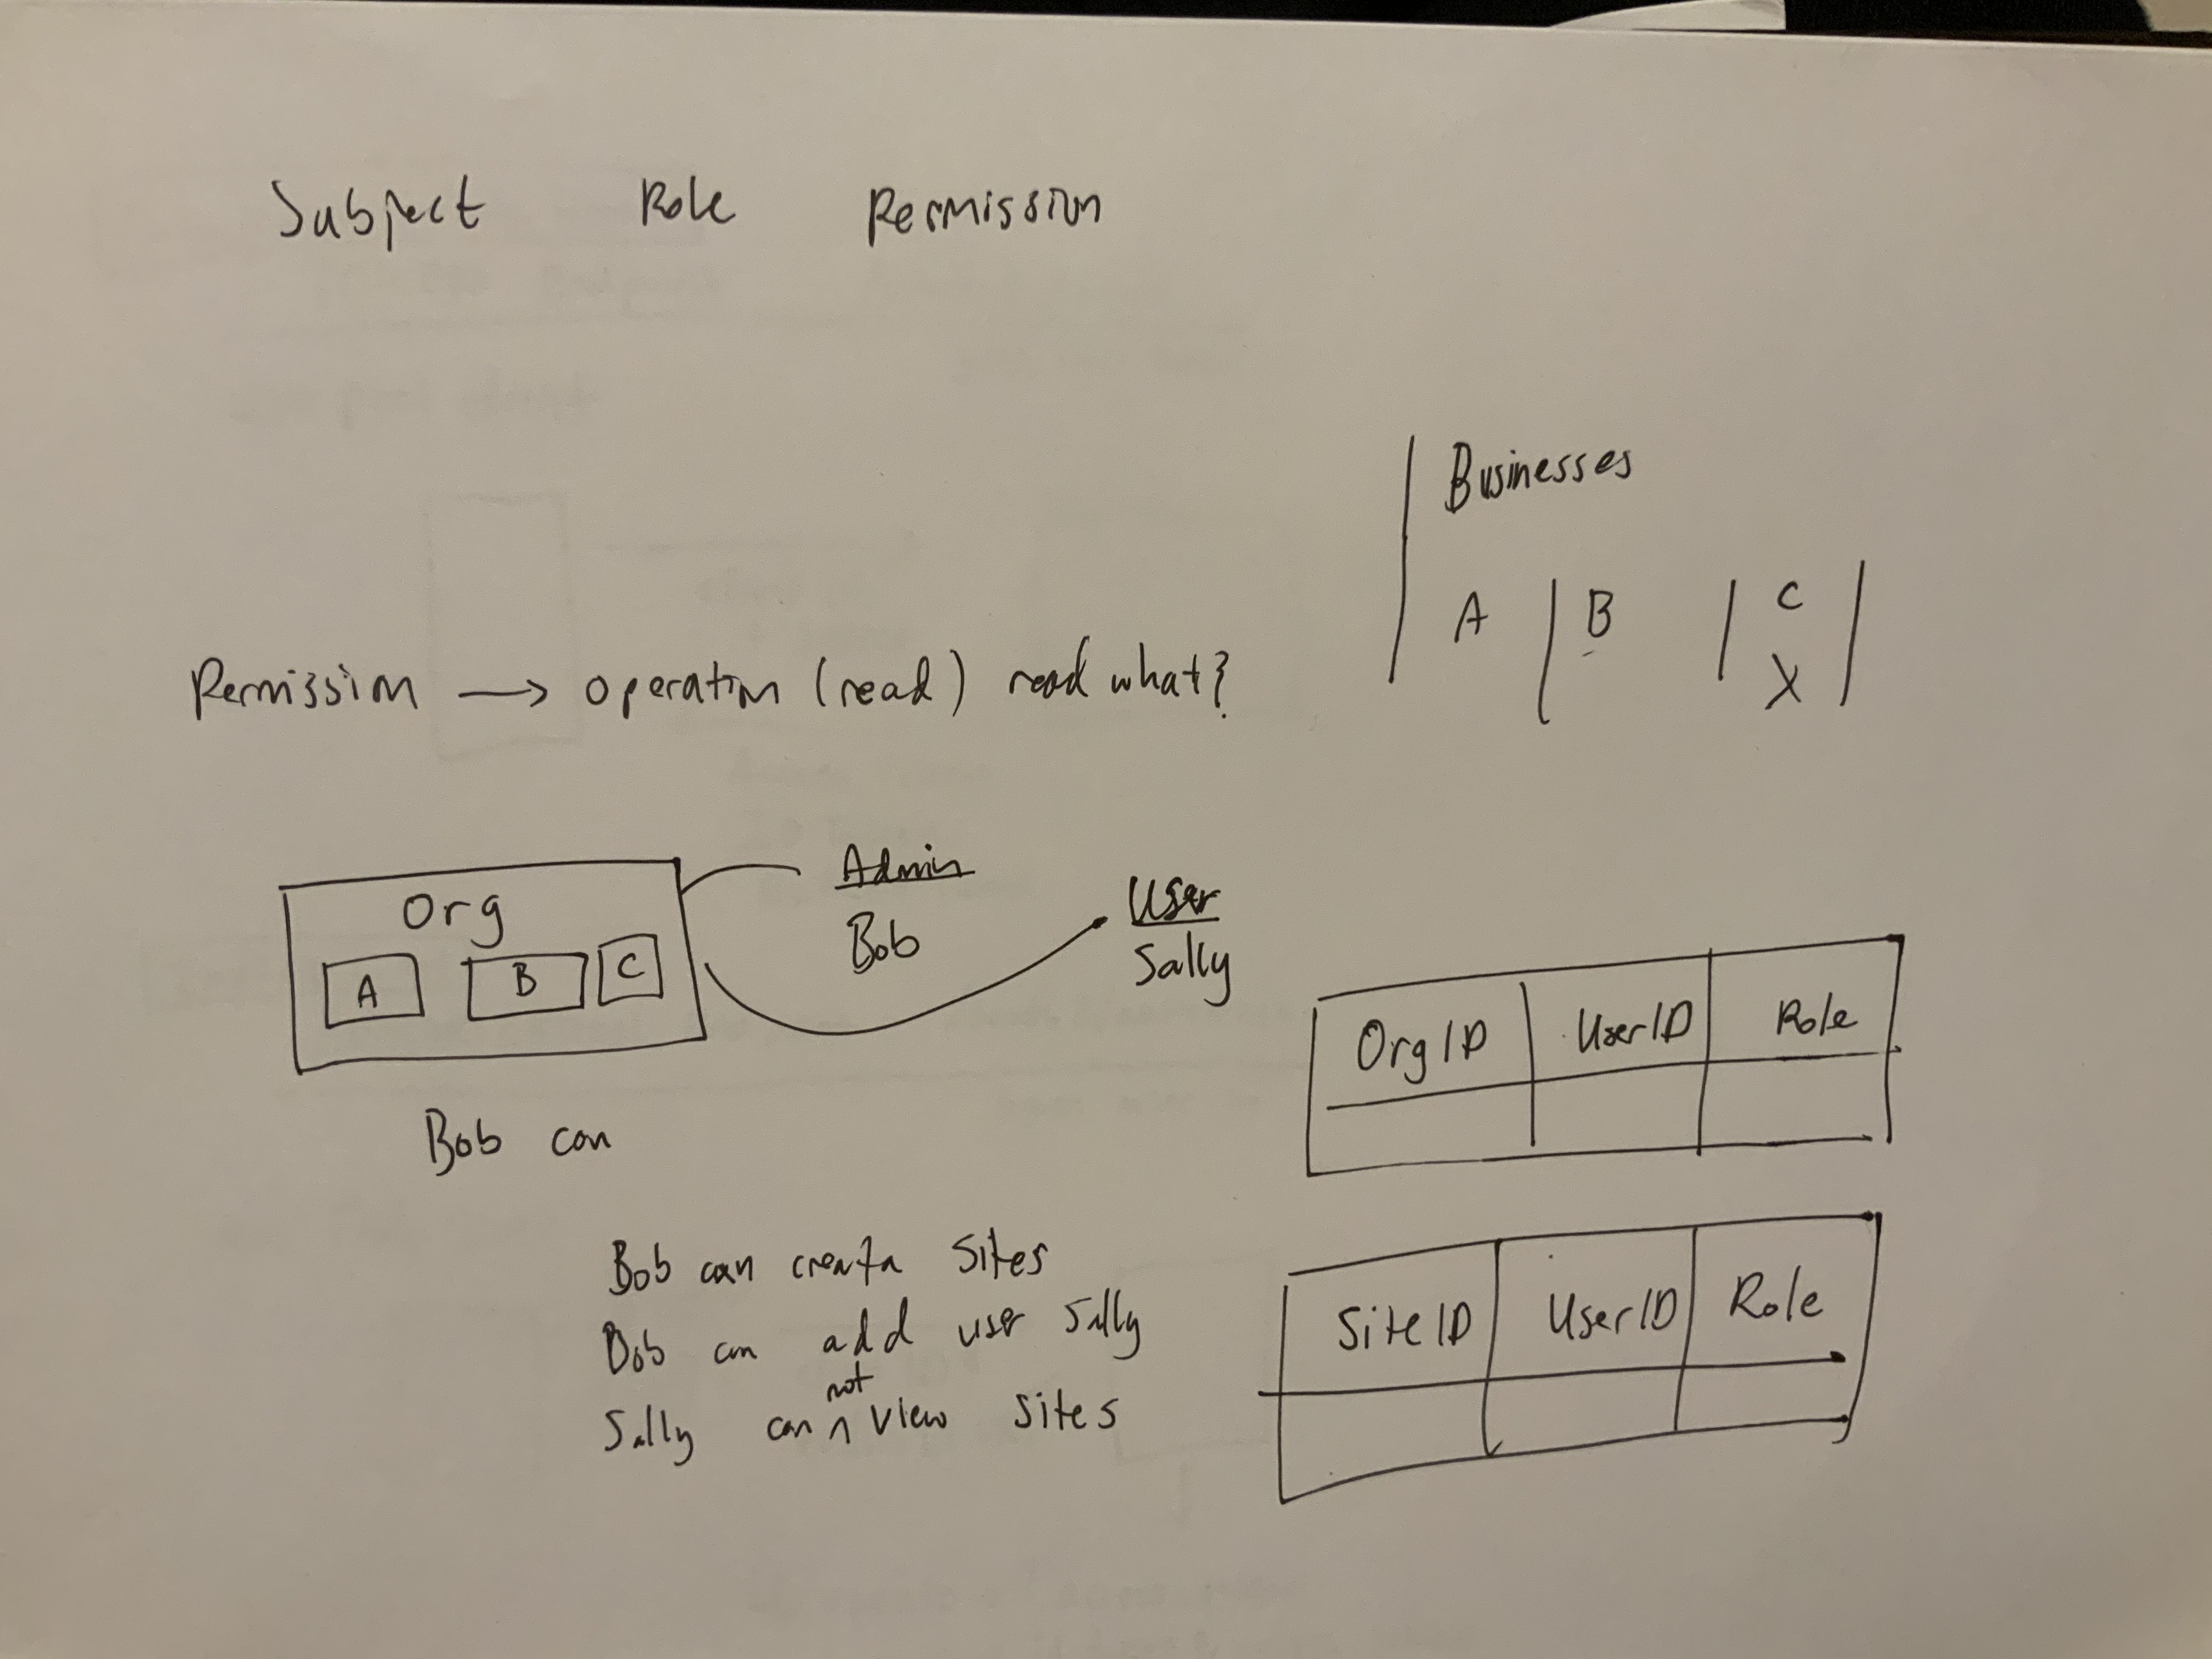 Subject Role Permission
Businesses
A | B | C |
X
Permission → operation (read) read what?
Org
A B C
Admin
Bob
User
Sally
OrgID UserID Role
Bob can
Bob can create Sites
Bob can add user Sally
not
Sally can ∧ view Sites
SiteID UserID Role